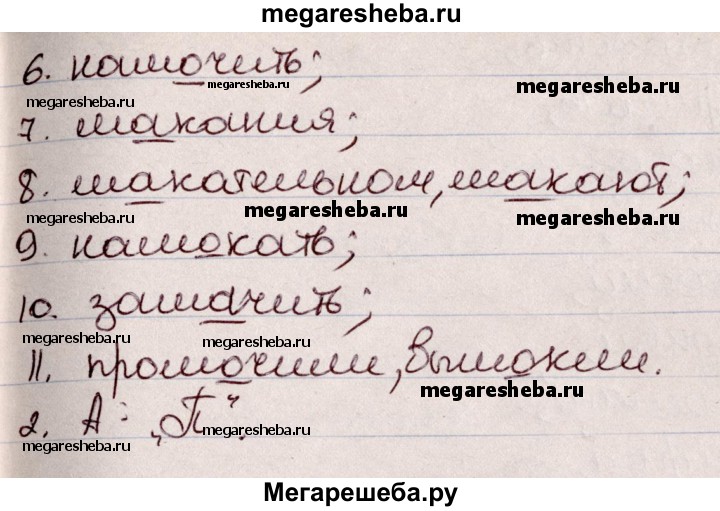 megaresheba.ru
6. намочить;
megaresheba.ru megaresheba.ru megaresheba.ru
7. макания;
8. макательном, макают;
megaresheba.ru megaresheba.ru megaresheba.ru
9. намокать;
10. замачить;
megaresheba.ru megaresheba.ru
11. промочили, вымокли.
megaresheba.ru
2. А - „П".
megaresheba.ru megaresheba.ru
Мегарешеба.ру